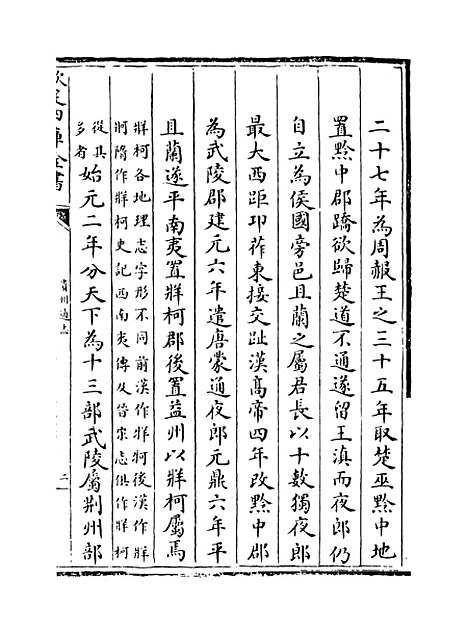 二十七年為周赧王之三十五年取楚巫黔中地
置黔中郡蹻欲歸楚道不通遂留王滇而夜郎仍
自立為侯國旁邑且蘭之屬君長以十數獨夜郎
最大西距邛莋東接交趾漢高帝四年改黔中郡
為武陵郡建元六年遣唐蒙通夜郎元鼎六年平
且蘭遂平南夷置牂柯郡後置益州以牂柯屬焉
牂柯各地理志字形不同前漢作牂牁後漢作牂
牁隋作牂柯史記西南夷傳及晉宋志俱作牂柯
從其
多者始元二年分天下為十三部武陵屬荆州部
欽定四庫全書
貴州通志
二